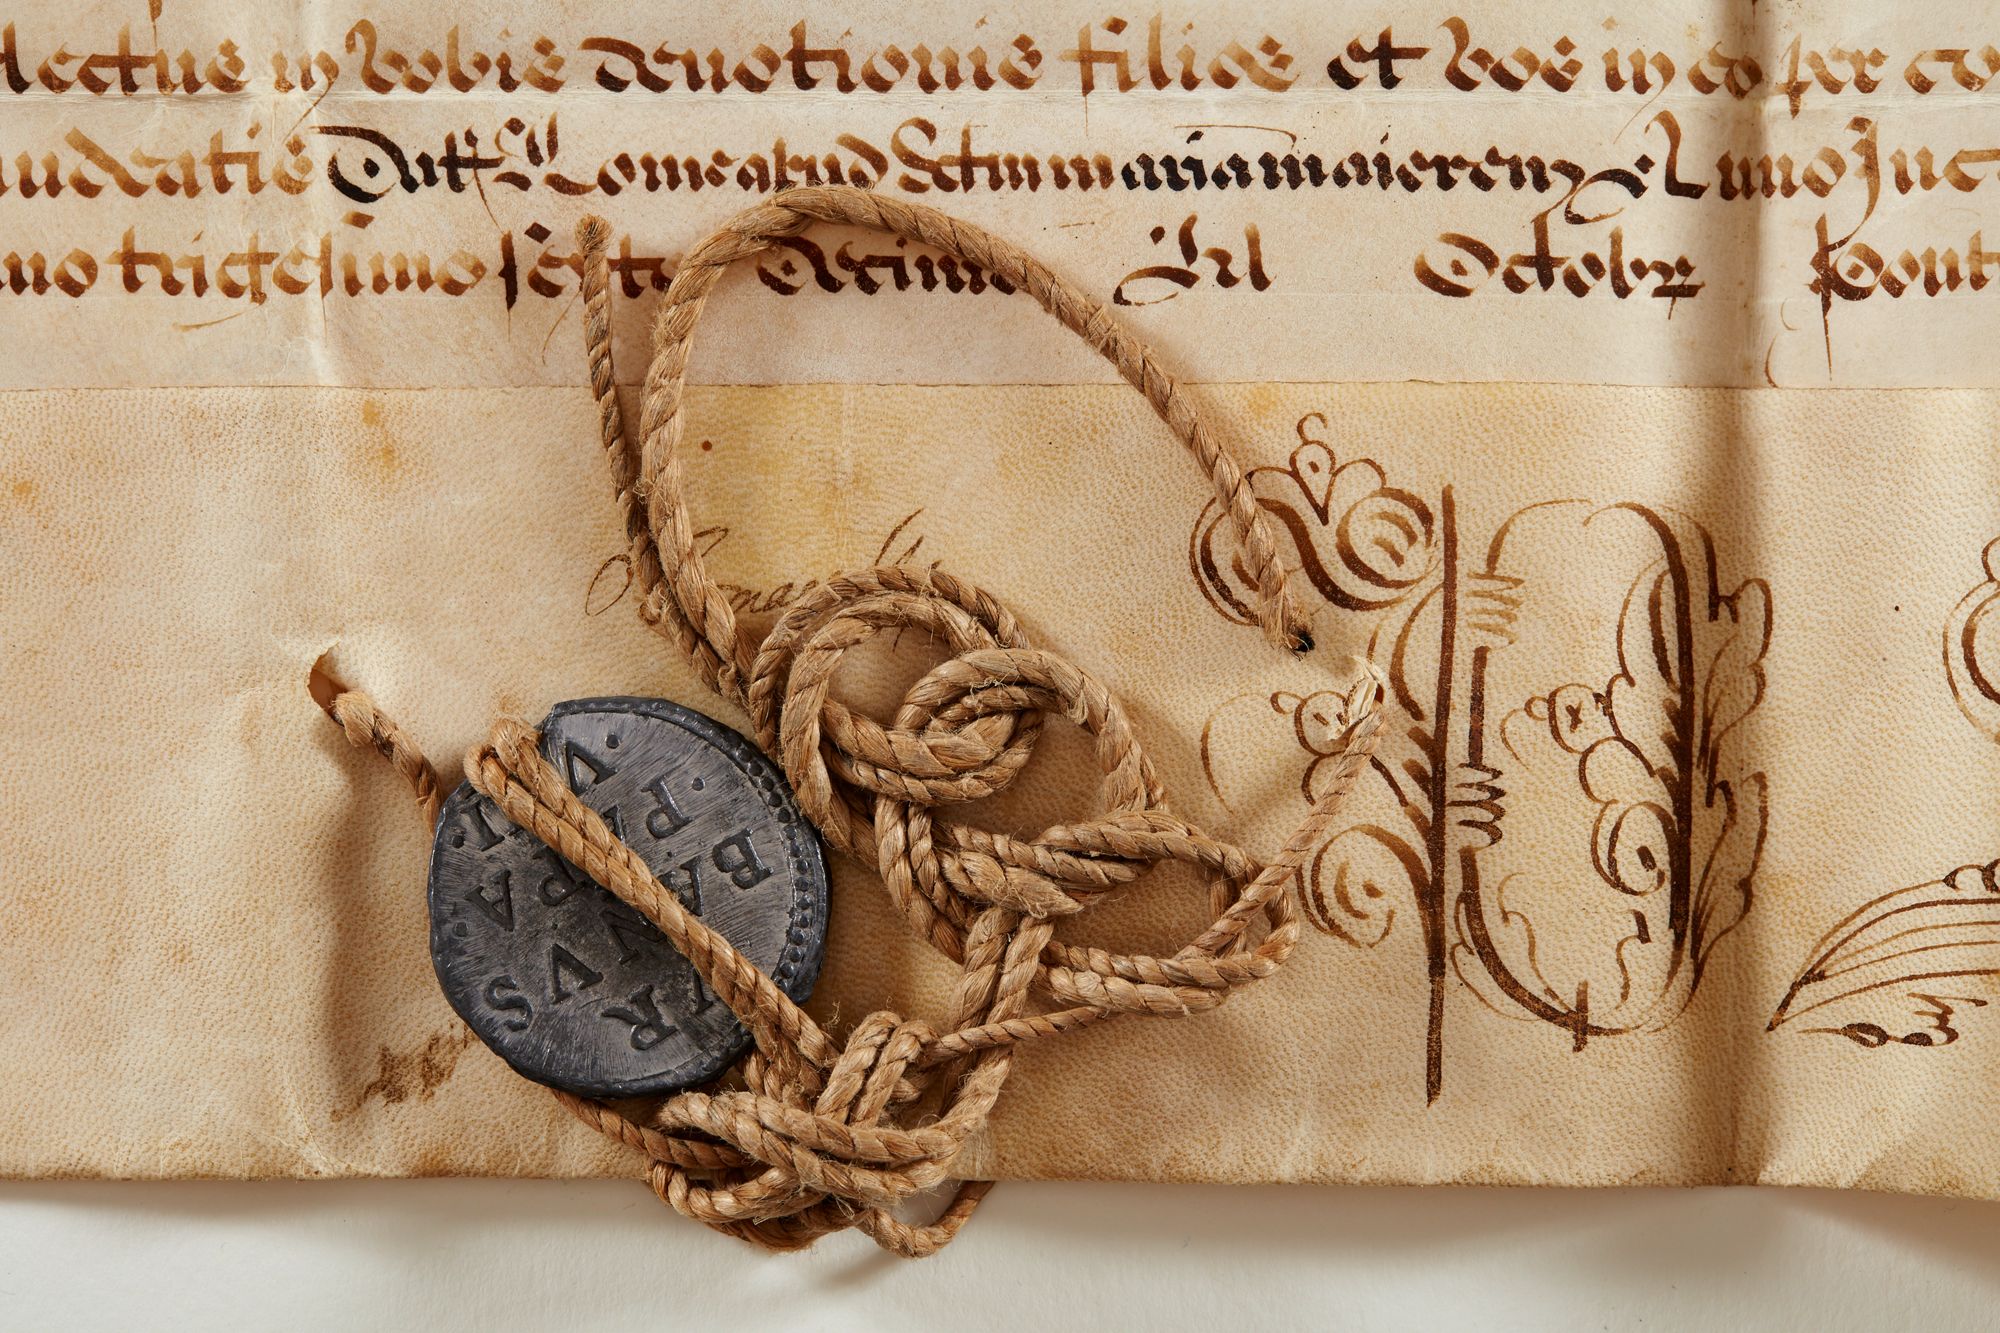 lectus in vobis deuotionis filios et vos in eo per co
udeatis Dat Rome apud Sctam mariam maiorem Anno Inc
mo trigesimo sexto Decimo kl Octobr Pont
VR
BANVS
·PAPA·